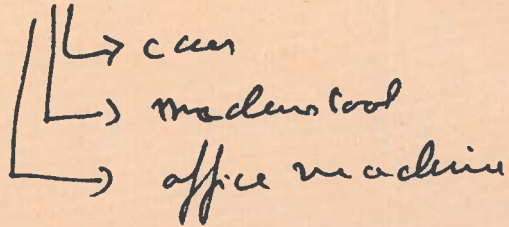 cars
machine tool
office machine